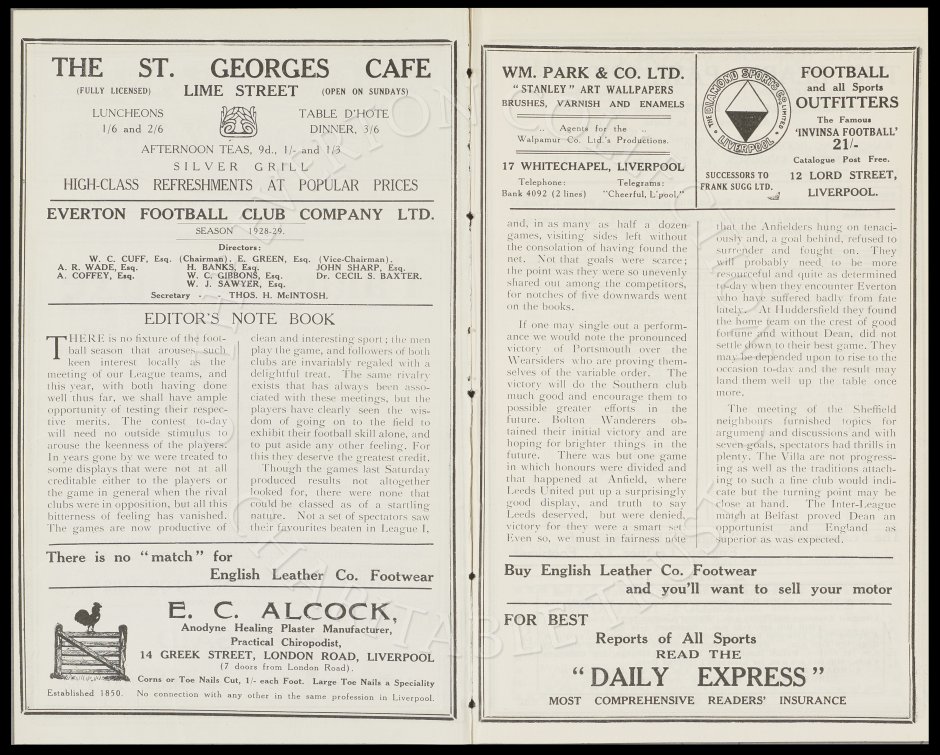 THE ST. GEORGES CAFE
(FULLY LICENSED) LIME STREET (OPEN ON SUNDAYS)
LUNCHEONS
1/6 and 2/6
TABLE D'HOTE
DINNER, 3/6
AFTERNOON TEAS, 9d., 1/- and 1/3
SILVER GRILL
HIGH-CLASS REFRESHMENTS AT POPULAR PRICES
EVERTON FOOTBALL CLUB COMPANY LTD.
SEASON 1928-29.
Directors:
W. C. CUFF, Esq. (Chairman). E. GREEN, Esq. (Vice-Chairman).
A. R. WADE, Esq. H. BANKS, Esq. JOHN SHARP, Esq.
A. COFFEY, Esq. W. C. GIBBONS, Esq. Dr. CECIL S. BAXTER.
W. J. SAWYER, Esq.
Secretary - - THOS. H. McINTOSH.
EDITOR'S NOTE BOOK
THERE is no fixture of the foot-
ball season that arouses such
keen interest locally as the
meeting of our League teams, and
this year, with both having done
well thus far, we shall have ample
opportunity of testing their respec-
tive merits. The contest to-day
will need no outside stimulus to
arouse the keenness of the players.
In years gone by we were treated to
some displays that were not at all
creditable either to the players or
the game in general when the rival
clubs were in opposition, but all this
bitterness of feeling has vanished.
The games are now productive of
clean and interesting sport; the men
play the game, and followers of both
clubs are invariably regaled with a
delightful treat. The same rivalry
exists that has always been asso-
ciated with these meetings, but the
players have clearly seen the wis-
dom of going on to the field to
exhibit their football skill alone, and
to put aside any other feeling. For
this they deserve the greatest credit.
Though the games last Saturday
produced results not altogether
looked for, there were none that
could be classed as of a startling
nature. Not a set of spectators saw
their favourites beaten in League I,
There is no "match" for
English Leather Co. Footwear
E. C. ALCOCK,
Anodyne Healing Plaster Manufacturer,
Practical Chiropodist,
14 GREEK STREET, LONDON ROAD, LIVERPOOL
(7 doors from London Road).
Corns or Toe Nails Cut, 1/- each Foot. Large Toe Nails a Speciality
Established 1850. No connection with any other in the same profession in Liverpool.
WM. PARK & CO. LTD.
"STANLEY" ART WALLPAPERS
BRUSHES, VARNISH AND ENAMELS
.. Agents for the ..
Walpamur Co. Ltd.'s Productions.
17 WHITECHAPEL, LIVERPOOL
Telephone: Telegrams:
Bank 4092 (2 lines) "Cheerful, L'pool."
THE DIAMOND SPORTS CO. LIMITED
LIVERPOOL
SUCCESSORS TO
FRANK SUGG LTD.
FOOTBALL
and all Sports
OUTFITTERS
The Famous
'INVINSA FOOTBALL'
21/-
Catalogue Post Free.
12 LORD STREET,
LIVERPOOL.
and, in as many as half a dozen
games, visiting sides left without
the consolation of having found the
net. Not that goals were scarce;
the point was they were so unevenly
shared out among the competitors,
for notches of five downwards went
on the books.
If one may single out a perform-
ance we would note the pronounced
victory of Portsmouth over the
Wearsiders who are proving them-
selves of the variable order. The
victory will do the Southern club
much good and encourage them to
possible greater efforts in the
future. Bolton Wanderers ob-
tained their initial victory and are
hoping for brighter things in the
future. There was but one game
in which honours were divided and
that happened at Anfield, where
Leeds United put up a surprisingly
good display, and truth to say
Leeds deserved, but were denied,
victory for they were a smart set.
Even so, we must in fairness note
that the Anfielders hung on tenaci-
ously and, a goal behind, refused to
surrender and fought on. They
will probably need to be more
resourceful and quite as determined
to-day when they encounter Everton
who have suffered badly from fate
lately. At Huddersfield they found
the home team on the crest of good
fortune and without Dean, did not
settle down to their best game. They
may be depended upon to rise to the
occasion to-day and the result may
land them well up the table once
more.
The meeting of the Sheffield
neighbours furnished topics for
argument and discussions and with
seven goals, spectators had thrills in
plenty. The Villa are not progress-
ing as well as the traditions attach-
ing to such a fine club would indi-
cate but the turning point may be
close at hand. The Inter-League
match at Belfast proved Dean an
opportunist and England as
superior as was expected.
Buy English Leather Co. Footwear
and you'll want to sell your motor
FOR BEST
Reports of All Sports
READ THE
"DAILY EXPRESS"
MOST COMPREHENSIVE READERS' INSURANCE